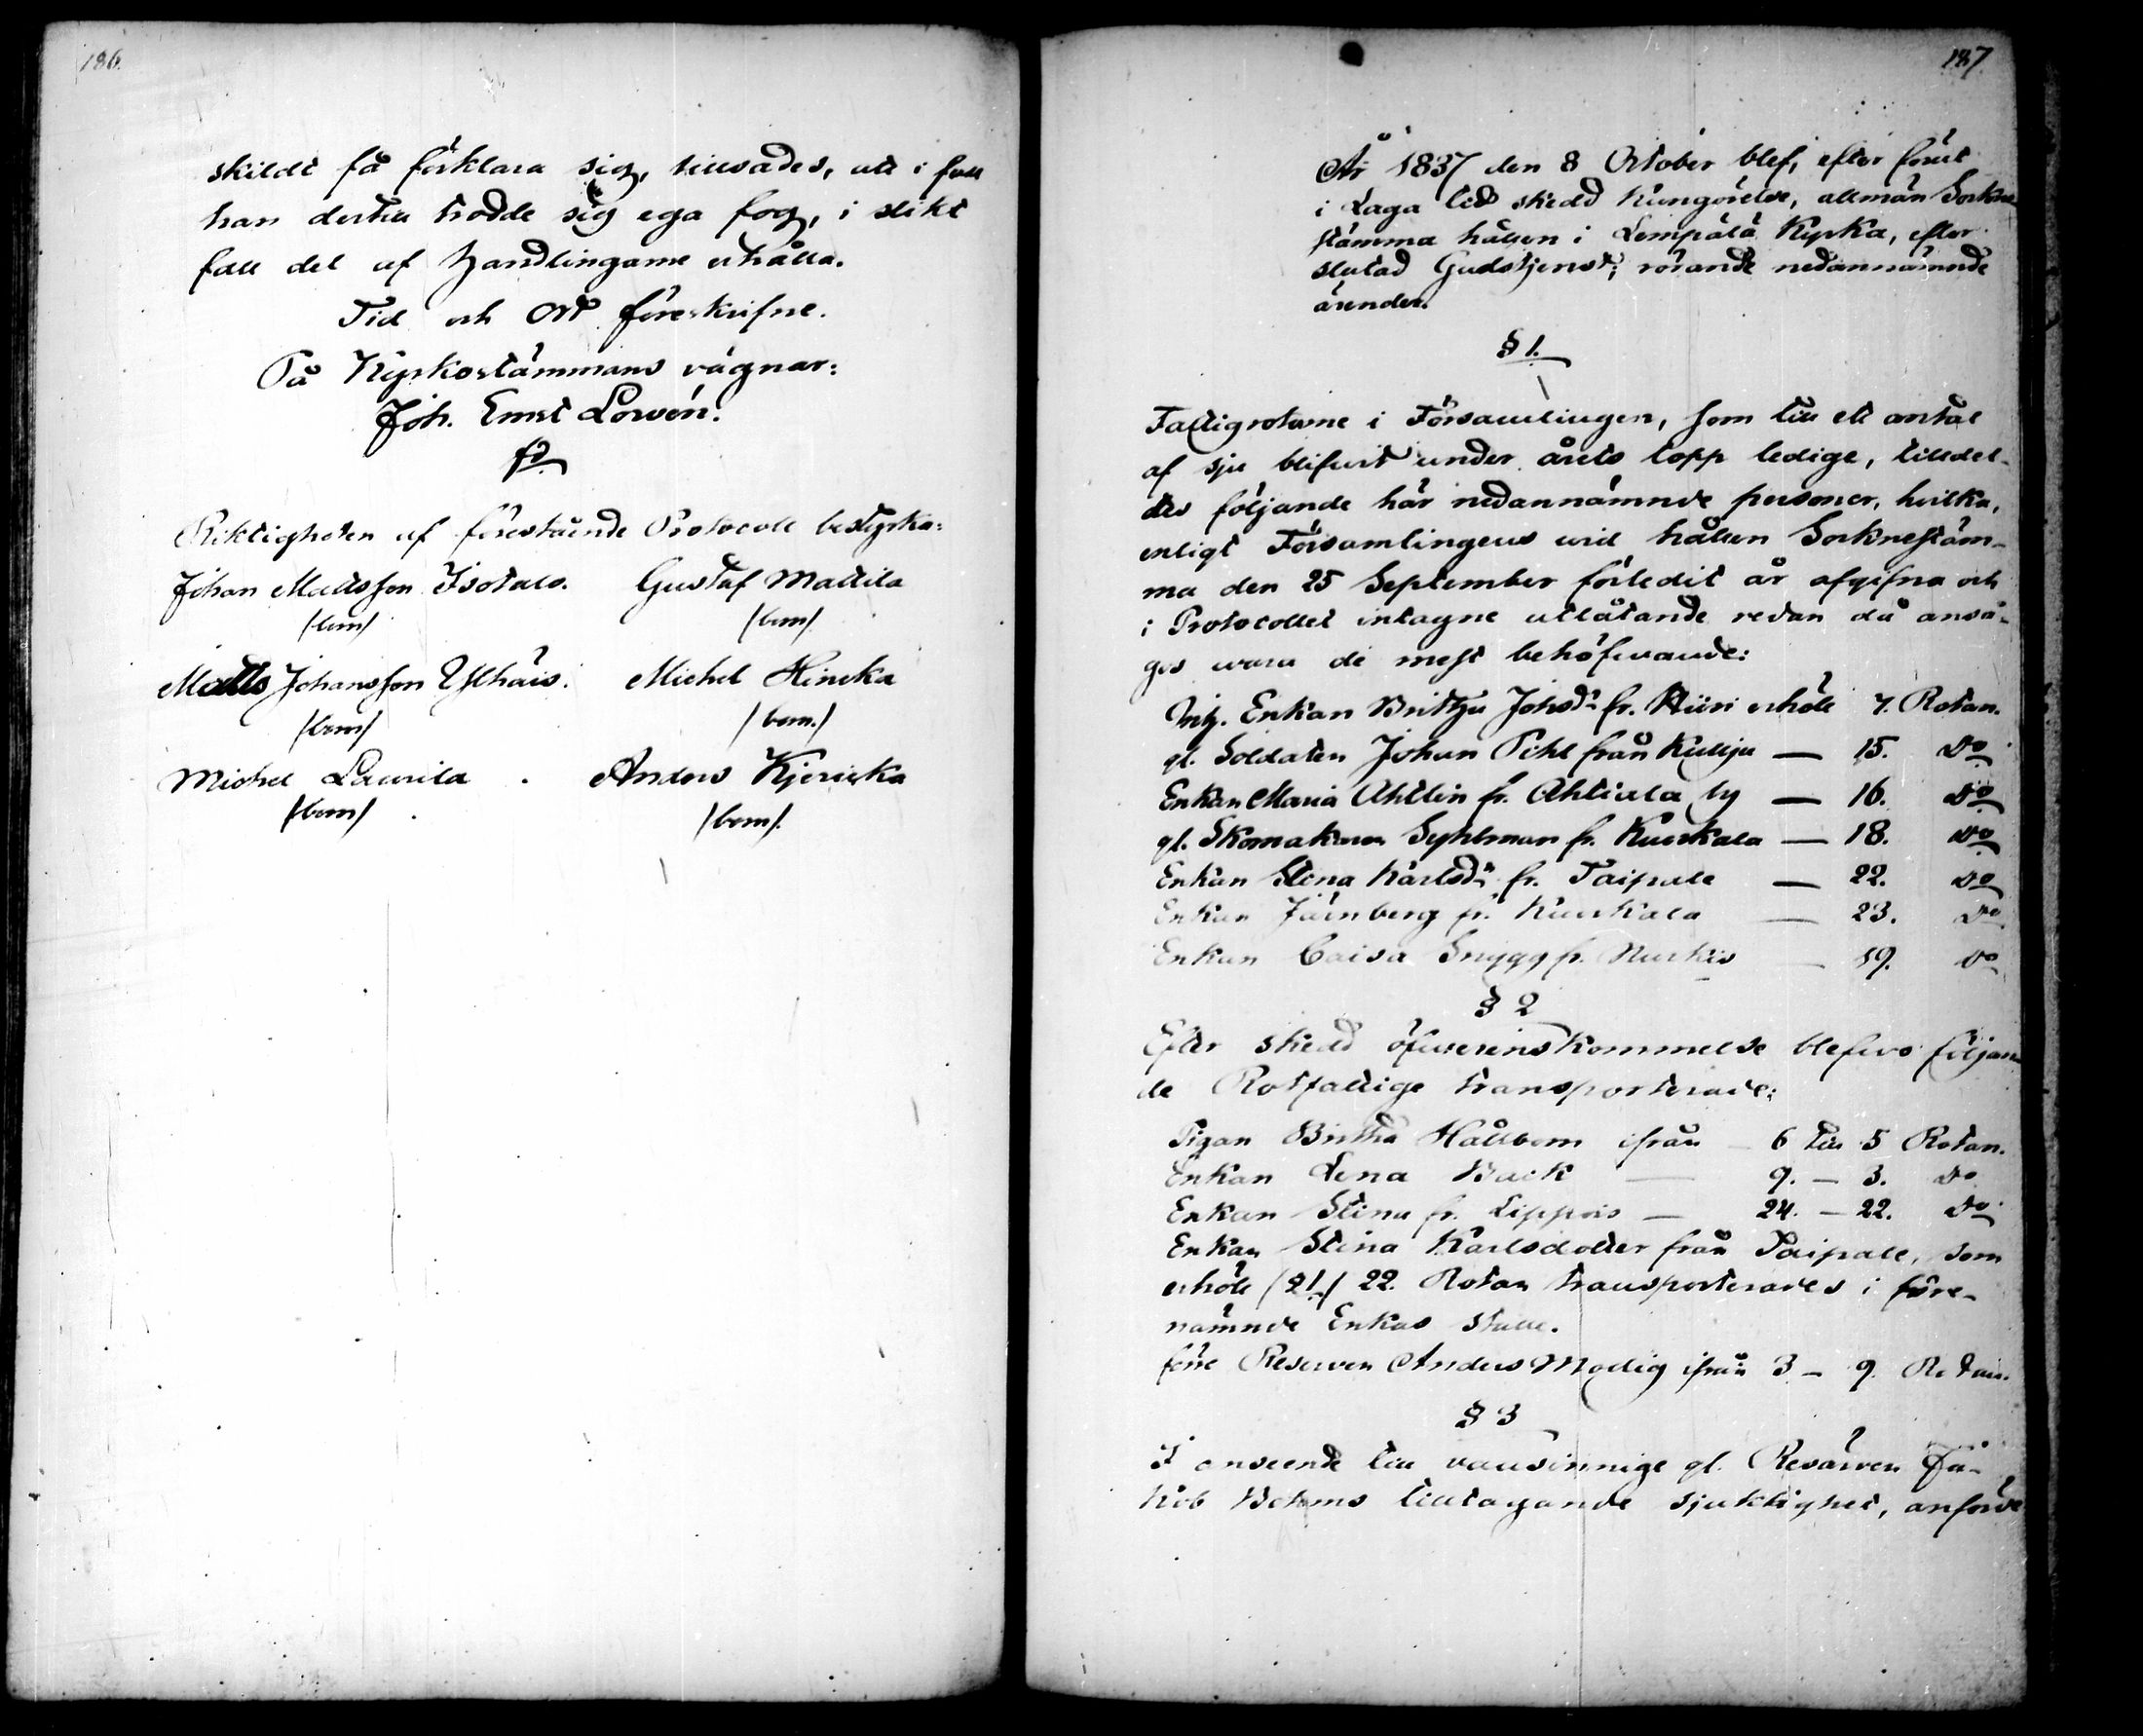 186.
skildt få förklara sig, tillsades, att i fall
han dertill trodde sig ega fog, i slikt
fall del af Handlingarne erhålla.
Tid och Ort föreskrifne.
På Kyrkostämmans vägnar:
Joh. Ernst Lovén.
Riktigheten af förestående Protocoll bestyrka:
Johan Matsson Isotalo. Gustaf Mattila
/bom/ /bom/
Matts Johansson Ylhäis. Michel Hincka
/bom/ /bom./
Michel Laurila . Anders Kjericka
/bom/ /bom/.
187
År 1837 den 8 October blef, efter förut
i Laga tid skedd Kungörelse, allmän Sockne
stämma hållen i Lempälä Kyrka, efter
slutad Gudstjenst, rörande nedannämnde
ärender.
§ 1.
Fattigrotarne i Församlingen, som till ett antal
af sju blifvit under årets lopp ledige, tilldel-
des följande här nedannämnde personer, hvilka,
enligt Församlingens wid hållen Socknestäm-
ma den 25 September förledit år afgifna och
i Protocollet intagne utlåtande redan då anså-
gos wara de mest behöfwande:
Inh. Enkan Brittja Johsdr fr. Kiiri erhöll 7. Rotan.
gl. Soldaten Johan Pihl från Kulju — 15. Do
Enkan Maria Ahllin fr. Ahtiala by — 16. Do
gl. Skomakaren Syhlman fr. Kuokala — 18. Do
Enkan Stina Karlsdr fr. Taipale — 22. Do
Enkan Järnberg fr. Kuokala — 23. Do
Enkan Caisa Snygg fr. Nurkis — 19. Do
§ 2
Efter skedd öfwerenskommelse blefwo följan
de Rotfattige transporterade:
Pigan Britha Hällbom ifrån — 6 till 5 Rotan.
Enkan Lena Back — 9. — 3. Do
Enkan Stina fr. Lippois — 24. — 22. Do
Enkan Stina Karlsdotter från Taipale, som
erhöll /§ 1./ 22. Rotan transporterades i före-
nämnde Enkas ställe.
förre Reserven Anders Modig ifrån 3 — 9. Rotan.
§ 3
I anseende till vansinnige gl. Reserven Ja-
kob Bohms tilltagande sjuklighet, anförde